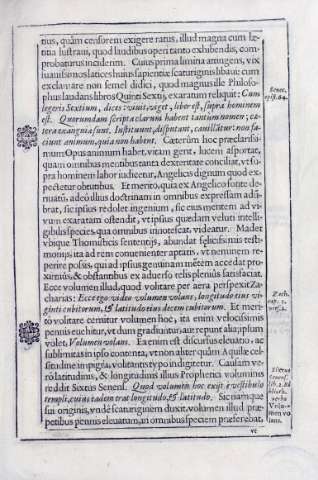 tius, quàm censorem exigere ratus, illud magna cum læ-
titia lustrani, quod laudibus operi tanto exhibendis, com-
probaturus inciderim. Cuius prima limina attingens, vix
suauissimos latices huius sapientiæ scaturiginis hibaui: cum
exclamare non semel didici, quod magnus ille Philoso-
phus laudans libros Quinti Sextij, exaratum reliquit: Cum
legeris Sextium, dices: viuit, viget, liber est, supra hominem
est. Quorundam scripta clarum habent tantum nomen; cæ-
tera exanguia sunt. Instituunt, disputant, cauillatur: non fa-
ciunt animum, quia non habent. Cæterùm hoc præclarissi-
mum Opus animum habet, vitam gerit, lucem asportat,
quam omnibus mentibus tanta dexteritate conciliat, vt su-
pra hominem labor iudicetur, Angelicis dignum quod ex-
pectetur obtutibus. Et meritò, quia ex Angelico fonte de-
nuatũ, adeò illius doctrinam in omnibus expressam adũ-
brat, sic ipsius redolet ingenium, sic eius mentem ad vi-
uum exaratam ostendit, vt ipsius quædam veluti intelli-
gibilis species, qua omnibus innotescat, videatur. Madet
vbique Thomisticis sententijs, abundat felicissimis testi-
monijs, ita ad rem conuenienter aptatis, vt neminem re-
perire possis, qui ad ipsius genuinam mētem accedat pro-
ximiùs, & obstantibus ex aduerso relis pleniùs satisfaciat.
Ecce volumen illud, quod volitare per aera perspexit Za-
charias: Ecce ego video volumen volans, longitudo eius vi-
ginti cubitorum, & latitudo eius decem cubitorum. Et meri-
tò volitare cernitur volumen hoc, ita enim velocissimis
pennis euehitur, vt dum gradiuntur, aut repunt alia, ipsum
volet, Volumen volans. Ea enim est discursus eleuatio, ac
sublimitas in ipso contenta, vt non aliter quàm Aquilæ cel-
situdine impigra, volitantis typo indigitetur. Causam ve-
rò latitudinis, & longitudinis illius Prophetici voluminis
reddit Sixtus Senens. Quod volumen hoc exijt è vestibulo
templi, cuius tadem erat longitudo, & latitudo. Sic namque
sui originis, vnde scaturiginem duxit, volumen illud præ-
petibus pennis eleuatum, in omnibus speciem præferebat,
vt
Senec.
epist. 64.
Zach.
cap. 5.
vers. 2.
Sixtus
Senens.
lib. 2. Bi
blioth.
verbo
Volu-
men vo
lans.